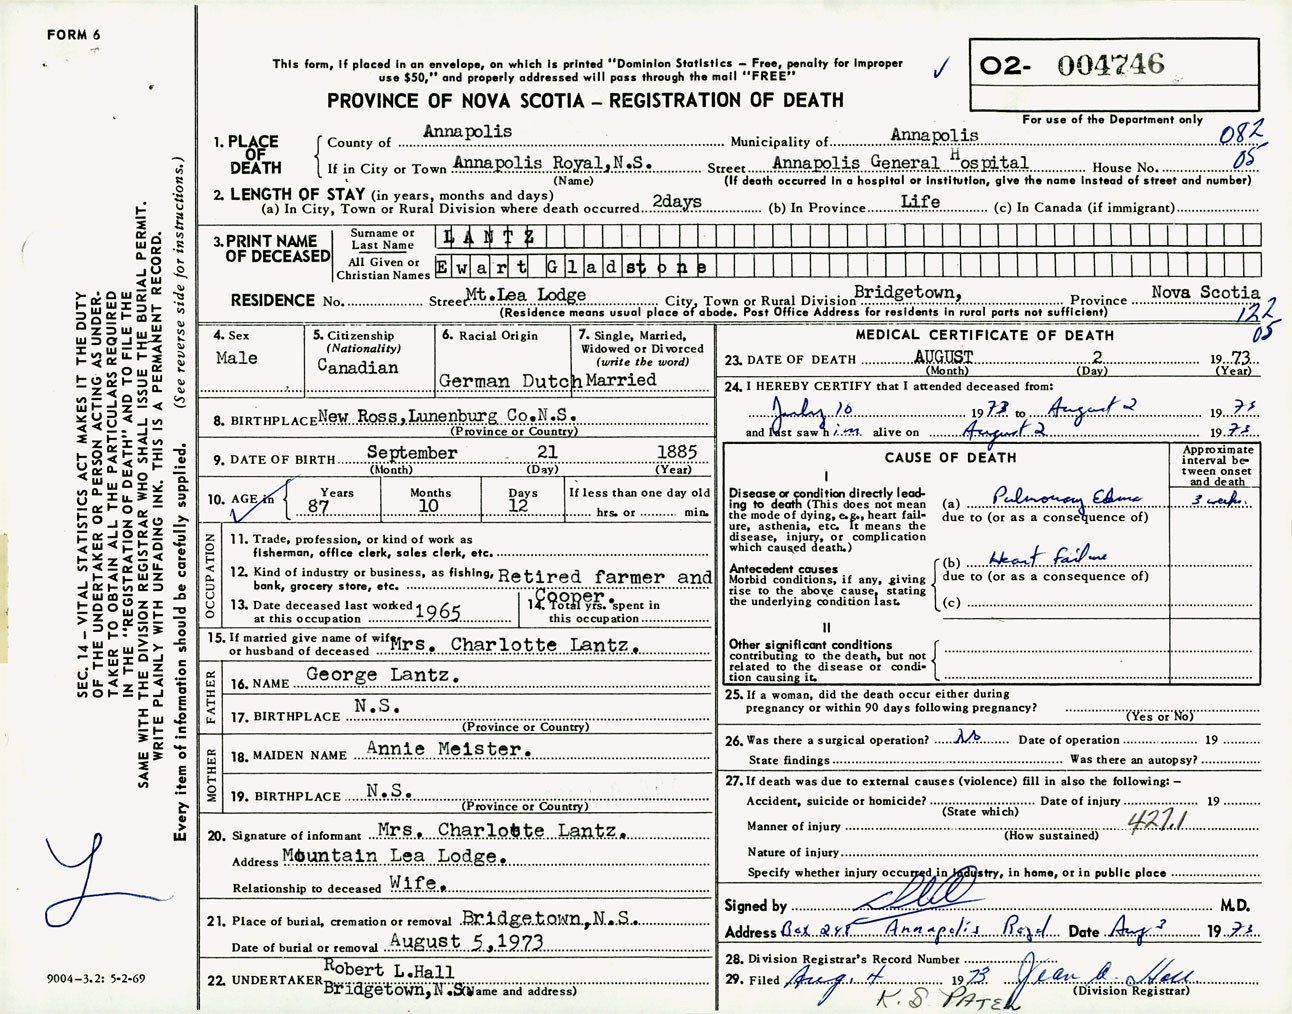 FORM 6
This form, if placed in an envelope, on which is printed "Dominion Statistics – Free, penalty for improper
use $50," and properly addressed will pass through the mail "FREE"
O2- 004746
PROVINCE OF NOVA SCOTIA – REGISTRATION OF DEATH
For use of the Department only
082
05
1. PLACE OF DEATH
County of Annapolis Municipality of Annapolis
If in City or Town Annapolis Royal,N.S. Street Annapolis General Hospital House No.
(Name) (If death occurred in a hospital or institution, give the name instead of street and number)
2. LENGTH OF STAY (in years, months and days)
(a) In City, Town or Rural Division where death occurred 2days (b) In Province Life (c) In Canada (if immigrant)
3. PRINT NAME OF DECEASED
Surname or Last Name LANTZ
All Given or Christian Names Ewart Gladstone
RESIDENCE No. Street Mt.Lea Lodge City, Town or Rural Division Bridgetown, Province Nova Scotia
(Residence means usual place of abode. Post Office Address for residents in rural parts not sufficient)
122
05
4. Sex
Male
5. Citizenship
(Nationality)
Canadian
6. Racial Origin
German Dutch
7. Single, Married,
Widowed or Divorced
(write the word)
Married
8. BIRTHPLACE New Ross,Lunenburg Co.N.S.
(Province or Country)
9. DATE OF BIRTH September 21 1885
(Month) (Day) (Year)
10. AGE in
Years Months Days If less than one day old
87 10 12 hrs. or min.
OCCUPATION
11. Trade, profession, or kind of work as
fisherman, office clerk, sales clerk, etc.
12. Kind of industry or business, as fishing, Retired farmer and
bank, grocery store, etc. Cooper.
13. Date deceased last worked 1965
at this occupation
14. Total yrs. spent in
this occupation
15. If married give name of wife
or husband of deceased Mrs. Charlotte Lantz.
FATHER
16. NAME George Lantz.
17. BIRTHPLACE N.S.
(Province or Country)
MOTHER
18. MAIDEN NAME Annie Meister.
19. BIRTHPLACE N.S.
(Province or Country)
20. Signature of informant Mrs. Charlotte Lantz.
Address Mountain Lea Lodge.
Relationship to deceased Wife.
21. Place of burial, cremation or removal Bridgetown,N.S.
Date of burial or removal August 5,1973
22. UNDERTAKER Robert L.Hall
Bridgetown,N.S. (Name and address)
MEDICAL CERTIFICATE OF DEATH
23. DATE OF DEATH AUGUST 2 1973
(Month) (Day) (Year)
24. I HEREBY CERTIFY that I attended deceased from:
July 10 1973 to August 2 1973
and last saw him alive on August 2 1973
CAUSE OF DEATH
Approximate
interval be-
tween onset
and death
I
Disease or condition directly lead-
ing to death (This does not mean
the mode of dying, e.g., heart fail-
ure, asthenia, etc. It means the
disease, injury, or complication
which caused death.)
(a) Pulmonary Edema 3 weeks.
due to (or as a consequence of)
Antecedent causes
Morbid conditions, if any, giving
rise to the above cause, stating
the underlying condition last.
(b) Heart Failure
due to (or as a consequence of)
(c)
II
Other significant conditions
contributing to the death, but not
related to the disease or condi-
tion causing it.
25. If a woman, did the death occur either during
pregnancy or within 90 days following pregnancy?
(Yes or No)
26. Was there a surgical operation? No Date of operation 19
State findings Was there an autopsy?
27. If death was due to external causes (violence) fill in also the following: –
Accident, suicide or homicide? Date of injury 19
(State which)
Manner of injury 427.1
(How sustained)
Nature of injury
Specify whether injury occurred in industry, in home, or in public place
Signed by M.D.
Address Box 248 Annapolis Royal Date Aug 3 1973
28. Division Registrar's Record Number
29. Filed Aug. 4 1973 Jean A. Hall
(Division Registrar)
K. S. PATEL
SEC. 14 – VITAL STATISTICS ACT MAKES IT THE DUTY
OF THE UNDERTAKER OR PERSON ACTING AS UNDER-
TAKER TO OBTAIN ALL THE PARTICULARS REQUIRED
IN THE "REGISTRATION OF DEATH" AND TO FILE THE
SAME WITH THE DIVISION REGISTRAR WHO SHALL ISSUE THE BURIAL PERMIT.
WRITE PLAINLY WITH UNFADING INK. THIS IS A PERMANENT RECORD.
Every item of information should be carefully supplied. (See reverse side for instructions.)
9004–3.2: 5-2-69